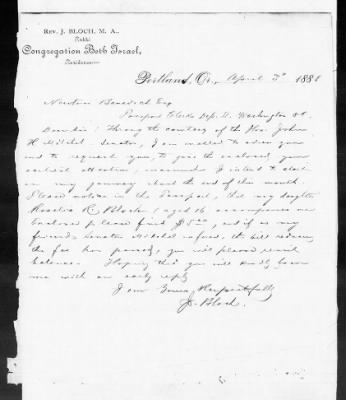 REV. J. BLOCH, M. A.,
Rabbi
Congregation Beth Israel,
Residence
Portland, Or., April 3d 1888
Newton Benedict Esq
Passport Clerk Dep. St. Washington
Dear Sir! Through the courtesy of the Hon. John
H. Mitchel Senator, I am enabled to
and to request you, to give the enclosed your
earliest attention, inasmuch I intend to start
on my journey about the end of this month.
Please notice in the Passport, that my daughter
R. Bloch (aged 16 accompanies me
Enclosed please find $5.00, and if as my
friend Senator Mitchel the bill
the fee has passed, you will please remit
balance. Hoping that you will kindly favor
me with an early reply
I am Yours, Respectfully
J. Bloch.